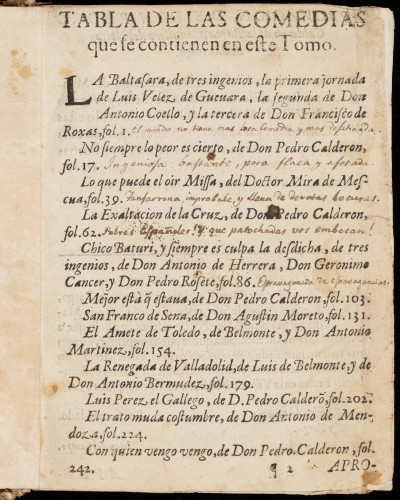 TABLA DE LAS COMEDIAS
que se contienen en este Tomo.
LA Baltasara, de tres ingenios, la primera jornada
de Luis Velez de Gueuara, la segunda de Don
Antonio Coello, y la tercera de Don Francisco de
Roxas, fol. 1. El mundo no tiene mas loca Comedia y mas desatinada.
No siempre lo peor es cierto, de Don Pedro Calderon,
fol. 17. Ingeniosa bastante, pero flaca y afetada.
Lo que puede el oir Missa, del Doctor Mira de Mes-
cua, fol. 39. Fanfarrona improbable, y llena de devotas locuras.
La Exaltacion de la Cruz, de Don Pedro Calderon,
fol. 62. Pobres Españoles! Y que patochadas vos embocan!
Chico Baturi, y siempre es culpa la desdicha, de tres
ingenios, de Don Antonio de Herrera, Don Geronimo
Cancer, y Don Pedro Rosete, fol. 86. Extravagancia de extravagancias.
Mejor està q̃ estava, de Don Pedro Calderon, fol. 103.
San Franco de Sena, de Don Agustin Moreto, fol. 131.
El Amete de Toledo, de Belmonte, y Don Antonio
Martinez, fol. 154.
La Renegada de Valladolid, de Luis de Belmonte, y de
Don Antonio Bermudez, fol. 179.
Luis Perez el Gallego, de D. Pedro Calderõ, fol. 202.
El trato muda costumbre, de Don Antonio de Men-
doza, fol. 224.
Con quien vengo vengo, de Don Pedro Calderon, fol.
242. q 2 APRO-